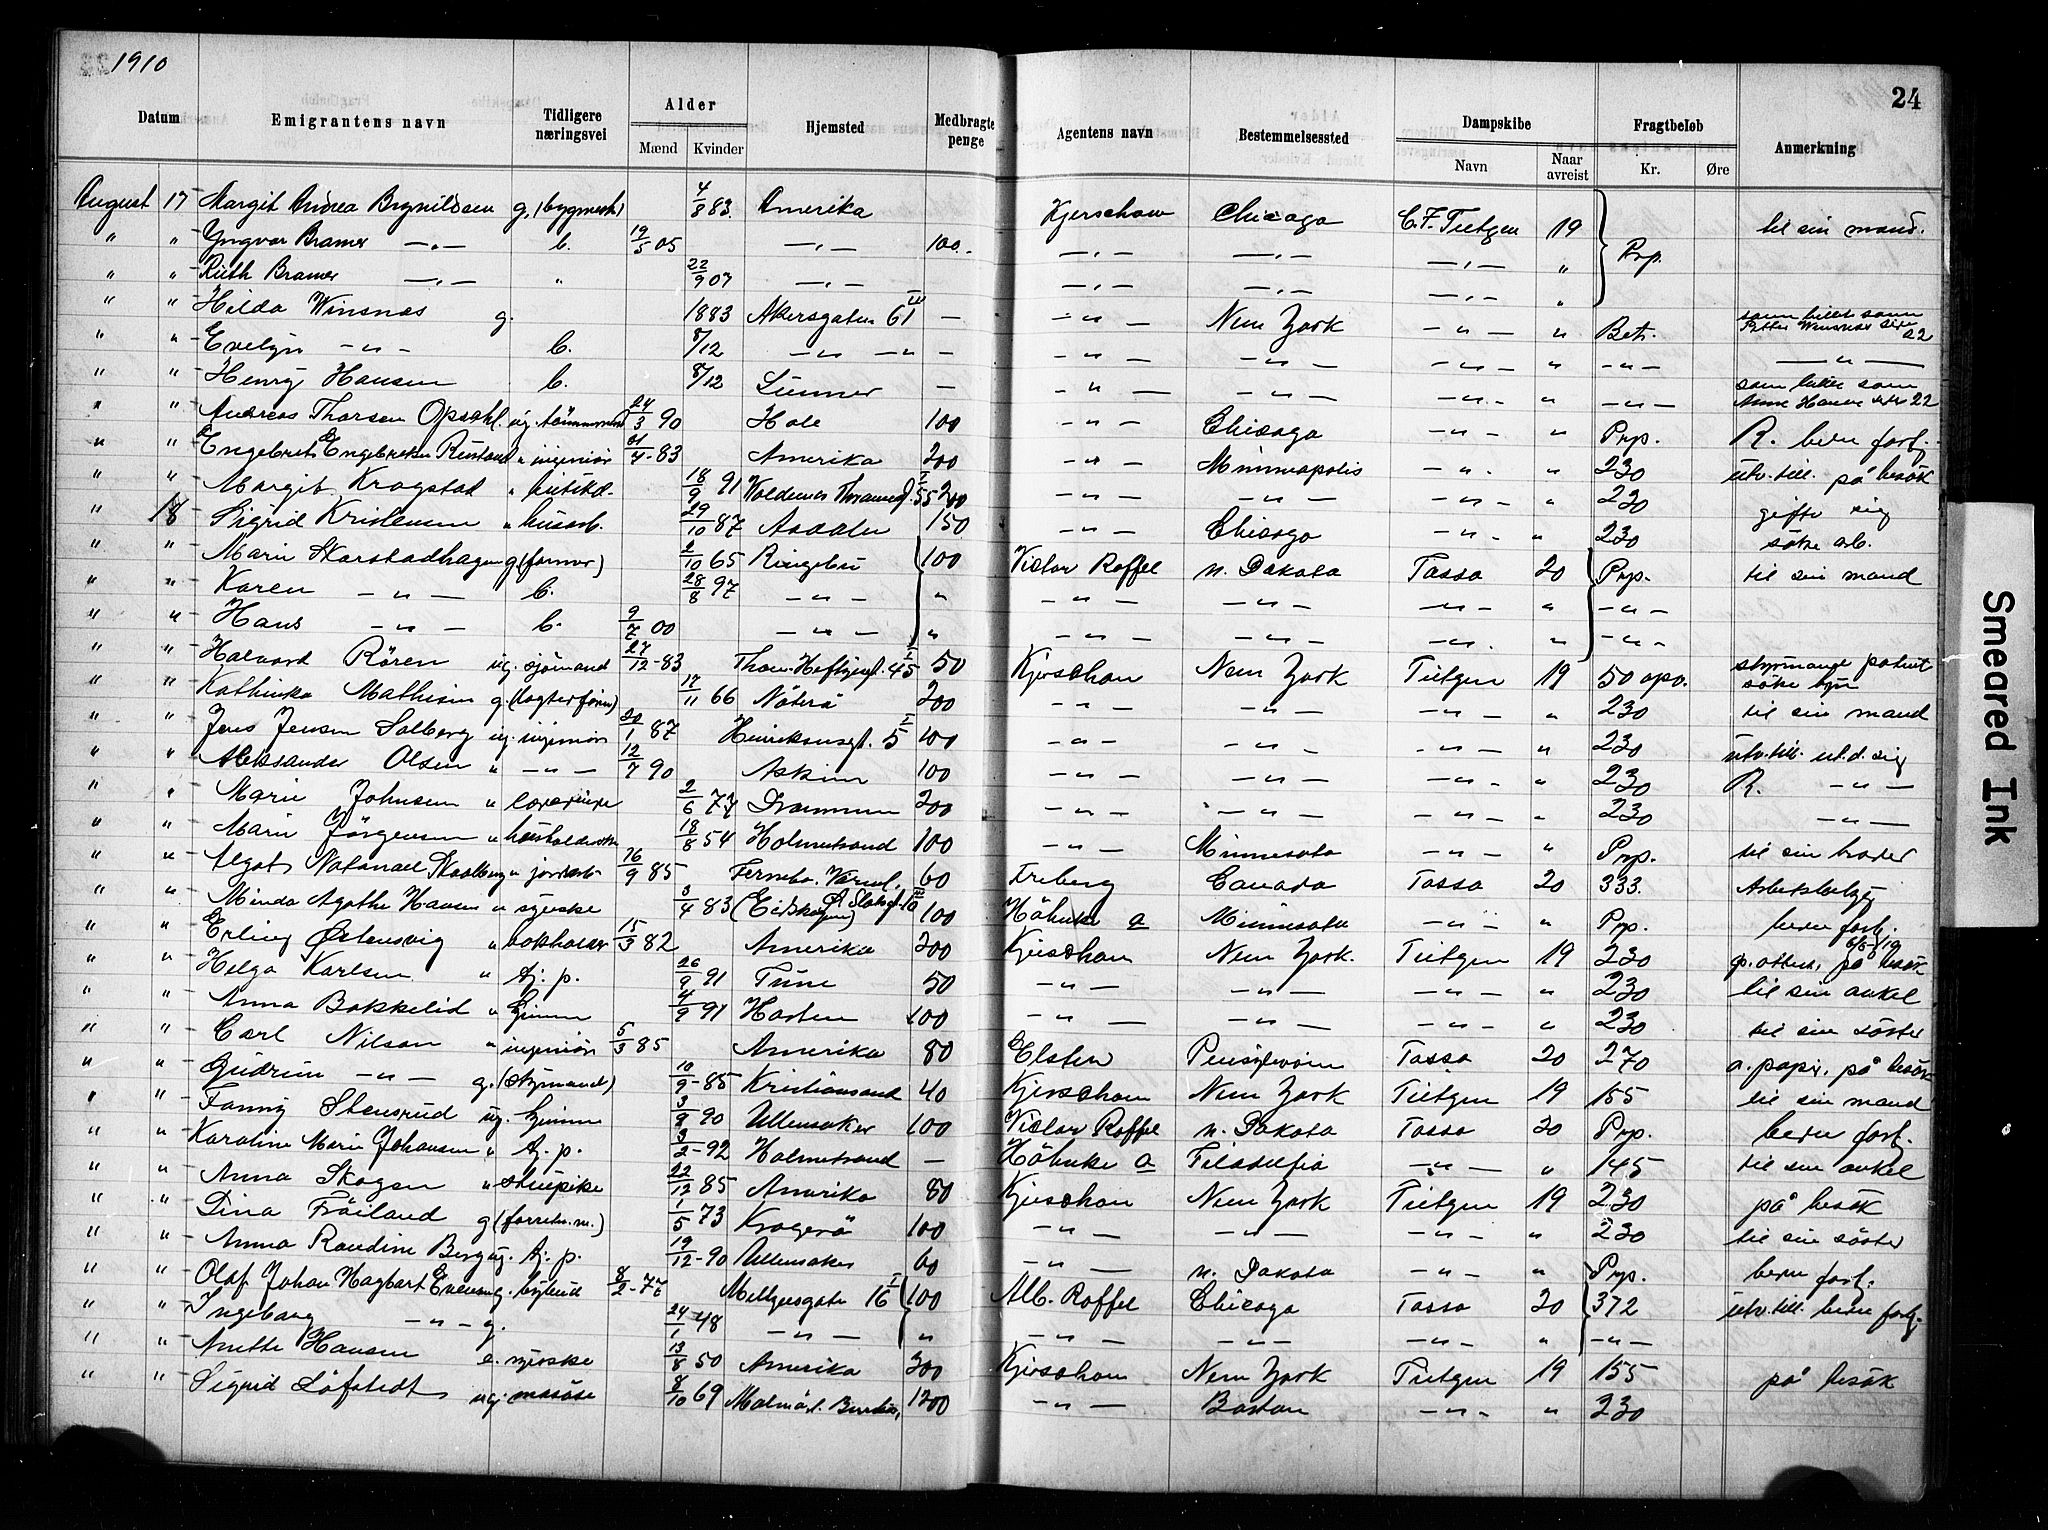 1910
24
Datum | Emigrantens navn | Tidligere næringsvei | Alder Mænd Kvinder | Hjemsted | Medbragte penge | Agentens navn | Bestemmelsessted | Dampskibe Navn Naar avreist | Fragtbeløb Kr. Øre | Anmerkning
August 17 Margit Andrea Brynildsen g. (bygmest) 4/8 83. Amerika Kjerschow Chicago C.F. Tietgen 19 til sin mand.
" " Yngvar Bramer —„— b. 19/5 05 —„— 100.- —„— —„— —„— " Prp.
" " Ruth Bramer —„— " 22/9 07 —„— —„— —„— —„— "
" " Hilda Winsnes g. 1883 Akersgaten 61 III — — " — New York — " — " Bet. som billet som Petter Winsnes side 22
" " Evelyn — " — b. 8/12 — " — " — — " — — " — — " — " — " — — " —
" " Henry Hansen b. 8/12 Lunner — — " — — " — — " — " — " — som billet som Anne Hansen side 22
" " Andreas Thorsen Opsahl. ug. tømmermand 24/3 90 Hole 100 — " — Chicago — " — " Prp. R. bedre fortj.
" " Engebret Engebretsen Rustand " ingeniør 21/4-83 Amerika 200 — " — Minneapolis — " — " 230 utv. till. på besøk
" " Margit Krogstad " butikd. 18/9 91 55 I 200 — " — — " — — " — " 230 gifte sig
" 18 Sigrid Kristensen " husarb. 29/10 87 Aadalen 150 — " — Chicago — " — " 230 søke arb.
" " Marie Skarstadhagen g (farmer) 2/10 65 Ringebu 100 Victor Roffel n. Dakota Tasso 20 Prp. til sin mand
" " Karen — " — b. 28/8 97 — " — " — " — — " — — " — " — " —
" " Hans — " — b. 9/7 00 — " — " — " — — " — — " — " — " —
" " Halvard Røren ug. sjømand 27/12-83 Thom. Heftyesgt. 45 I 50 Kjerschow New York Tietgen 19 50 opa. styrmands patent søke hyre
" " Kathinka Mathisen g. 17/11 66 Nøterø 200 — " — — " — — " — " 230 til sin mand
" " Jens Jensen Solberg ug. ingeniør 20/1 87 Henriksensgt. 5 I 400 — " — — " — — " — " 230 utv. till. utd. sig
" " Aleksander Olsen " — " — 12/7 90 Askim 100 — " — — " — — " — " 230 R. — " —
" " Marie Johnsen " lærerinde 2/6 77 Drammen 200 — " — — " — — " — " 230 — " —
" " Marie Jørgensen " husholderske 18/8 54 Holmestrand 100 — " — Minnesota — " — " Prp. til sin broder
" " Algot Natanael Skoalberg " jordarb. 16/9 85 Fernebo. Verml. 60 Friberg Canada Tasso 20 333. Arbeidsledig
" " Minda Agathe Hansen " syerske 3/4 83 (Eidskogen) 100 Höhnke a Minnesota — " — " Prp. bedre fortj.
" " Erling Østensvig " bokholder 15/3 82 Amerika 200 Kjerschow New York. Tietgen 19 230 p. attest. på besøk
" " Helga Karlsen " tj. p. 26/9 91 Tune 50 — " — — " — — " — " 230 til sin onkel
" " Anna Bakkelid " hjemme 4/9 91 Horten 100 — " — — " — — " — " 230 til sin søster
" " Carl Nilsen " ingeniør 5/3 85 Amerika 80 Elster Pensylvanien Tasso 20 270 a. papir. på besøk
" " Gudrun — " — g. (styrmand) 10/9-85 Kristiansand 40 Kjerschow New York Tietgen 19 155 til sin mand
" " Fanny Stensrud ug. hjemme 3/8 90 Ullensaker 100 Victor Roffel n. Dakota Tasso 20 Prp. bedre fortj.
" " Karoline Marie Johansen " tj. p. 3/2-92 Holmestrand — Höhnke a Filadelfia — " — " 145 til sin onkel
" " Anna Skogen " stuepike 22/12 85 Amerika 80 Kjerschow New York Tietgen 19 230 på besøk
" " Dina Frøiland g (forretn. m.) 1/5 73 Kragerø 100 — " — — " — — " — " 230 til sin søster
" " Anna Randine Berg ug. tj. p. 19/12-90 Ullensaker 60 — " — n. Dakota — " — " Prp. bedre fortj.
" " Olaf Johan Hagbart Evensen g. bybud 8/2-77 Meltzersgate 16 I 100 Alb. Roffel Chicago Tasso 20 372 utv. till. bedre fortj.
" " Ingeborg — " — g. 24/1 48 — " — " — " — — " — — " — " — " —
" " Anette Hansen e. syerske 13/8 50 Amerika 300 Kjerschow New York Tietgen 19 155 på besøk
" " Sigrid Löfstedt ug. massøse 8/10 69 1200 — " — Boston — " — " 230
Smeared Ink